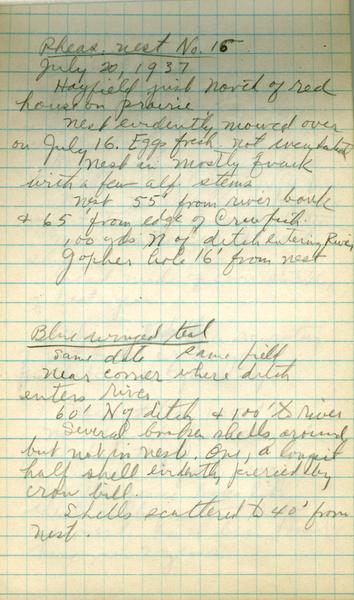 Pheas. nest No. 15
July 20, 1937
Hayfield just north of red
house on prairie
nest evidently mowed over
on July 16. Eggs fresh not incubated
Nest in mostly quack
with a few alf. stems
Nest 55' from river bank
& 65' from edge of
100 yds N of ditch entering River
Gopher hole 16' from nest
Blue winged teal
Same date Same field
Near corner where ditch
enters river
60' N of ditch & 100' to river
Several broken shells around
but not in nest. One, a longit
half shell evidently pierced by
crow bill.
Shells scattered to 40' from
nest.